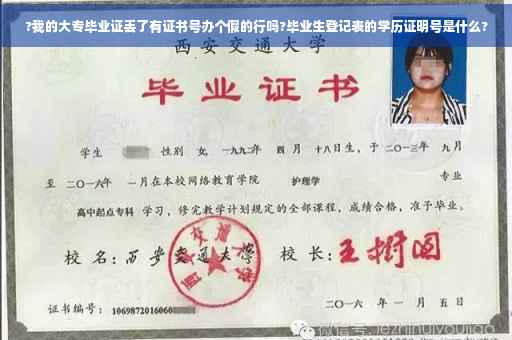 ?我的大专毕业证丢了有证书号办个假的行吗?毕业生登记表的学历证明号是什么?
西安交通大学
毕业证书
学生 性别 女,一九九二年 四月 十八日生,于二〇一三年 九月
至 二〇一六年 一月在本校网络教育学院 护理学 专业
高中起点专科 学习,修完教学计划规定的全部课程,成绩合格,准予毕业。
校名:西安交通大学 校长:王树国
西安交通大学
证书编号: 1069872016060
二〇一六年 一月 五日
微信号: